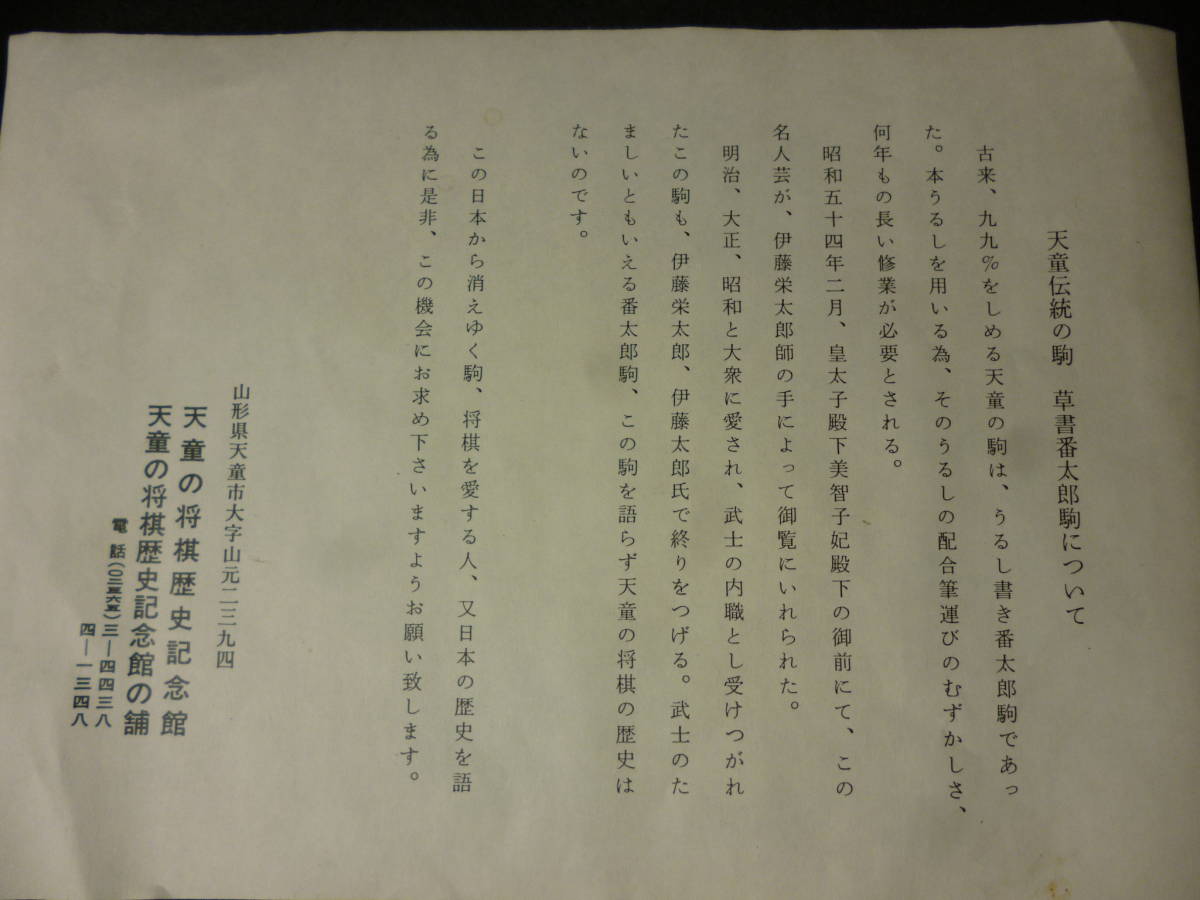 天童伝統の駒　草書番太郎駒について
古来、九九%をしめる天童の駒は、うるし書き番太郎駒であっ
た。本うるしを用いる為、そのうるしの配合筆運びのむずかしさ、
何年もの長い修業が必要とされる。
昭和五十四年二月、皇太子殿下美智子妃殿下の御前にて、この
名人芸が、伊藤栄太郎師の手によって御覧にいれられた。
明治、大正、昭和と大衆に愛され、武士の内職とし受けつがれ
たこの駒も、伊藤栄太郎、伊藤太郎氏で終りをつげる。武士のた
ましいともいえる番太郎駒、この駒を語らず天童の将棋の歴史は
ないのです。
この日本から消えゆく駒、将棋を愛する人、又日本の歴史を語
る為に是非、この機会にお求め下さいますようお願い致します。
山形県天童市大字山元二三九四
天童の将棋歴史記念館
天童の将棋歴史記念館の舗
電話(〇二三六五)三―四四三八
四―一三四八